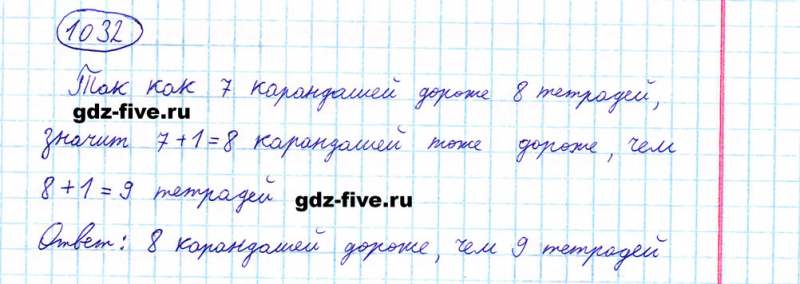 1032
Так как 7 карандашей дороже 8 тетрадей,
gdz-five.ru
значит 7+1=8 карандашей тоже дороже, чем
8+1=9 тетрадей
gdz-five.ru
Ответ: 8 карандашей дороже, чем 9 тетрадей